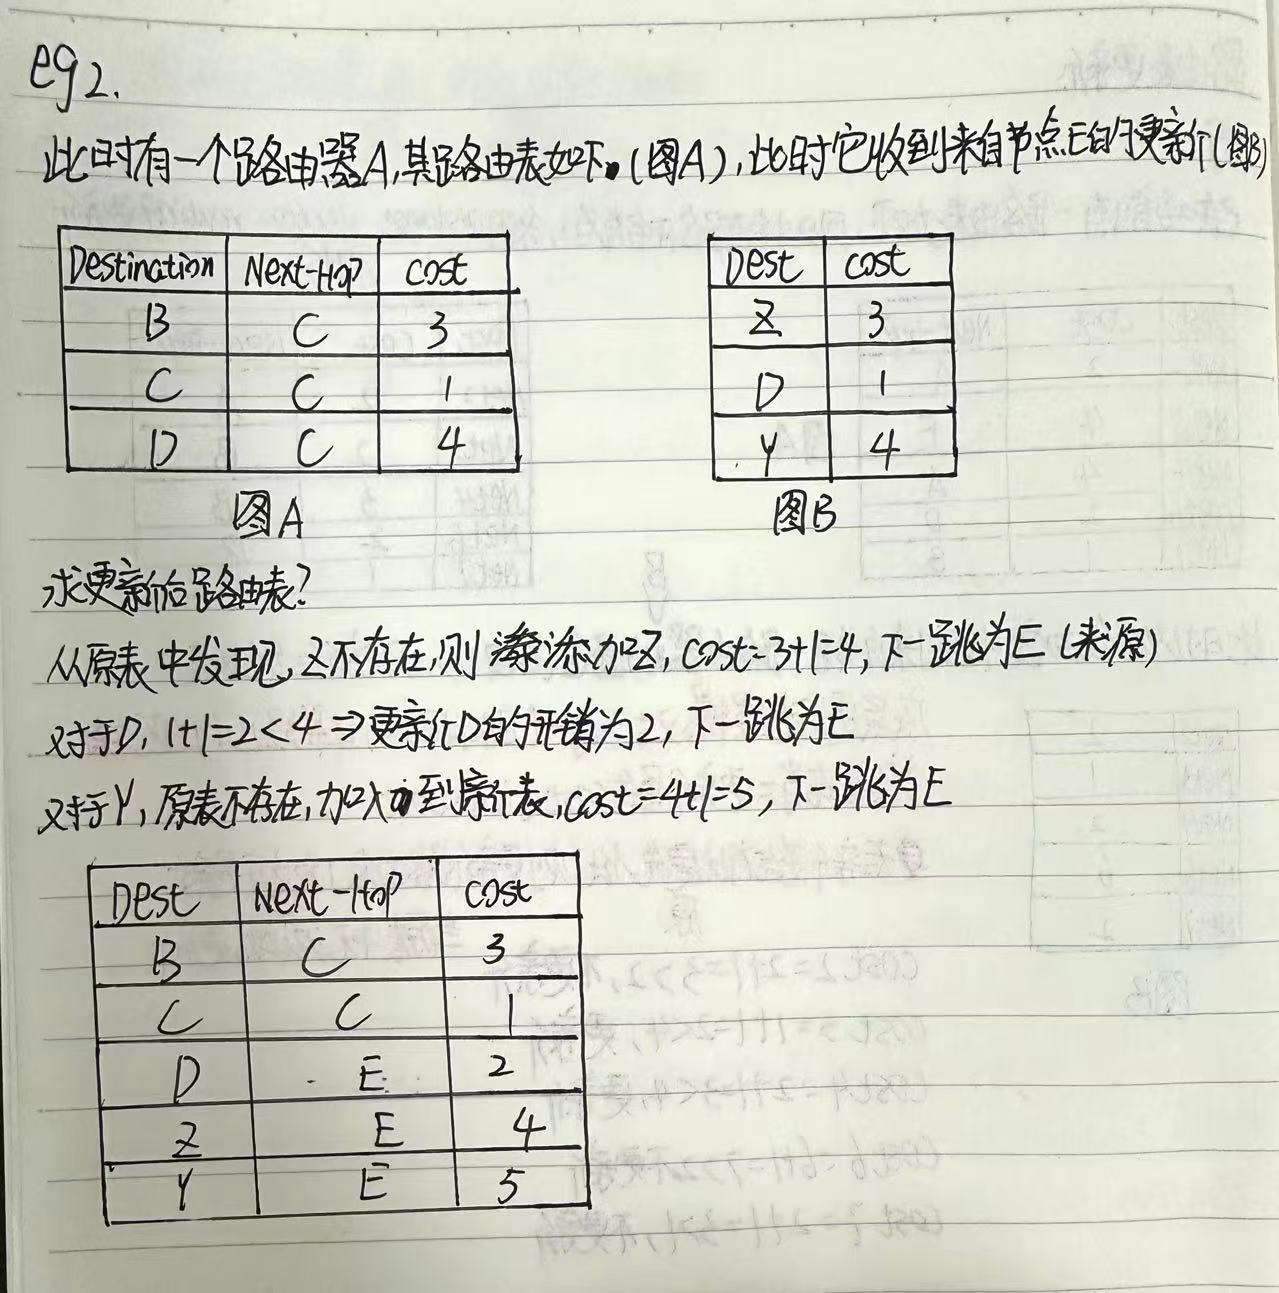 eg2.
此时有一个路由器A,其路由表如下。(图A),此时它收到来自节点E的更新(图B)
Destination Next-Hop cost
B C 3
C C 1
D C 4
图A
Dest cost
Z 3
D 1
Y 4
图B
求更新后路由表?
从原表中发现,Z不存在,则添加Z,cost=3+1=4,下一跳为E(来源)
对于D,1+1=2<4⇒更新D的开销为2,下一跳为E
对于Y,原表不存在,加入到新表,cost=4+1=5,下一跳为E
Dest Next-Hop cost
B C 3
C C 1
D E 2
Z E 4
Y E 5